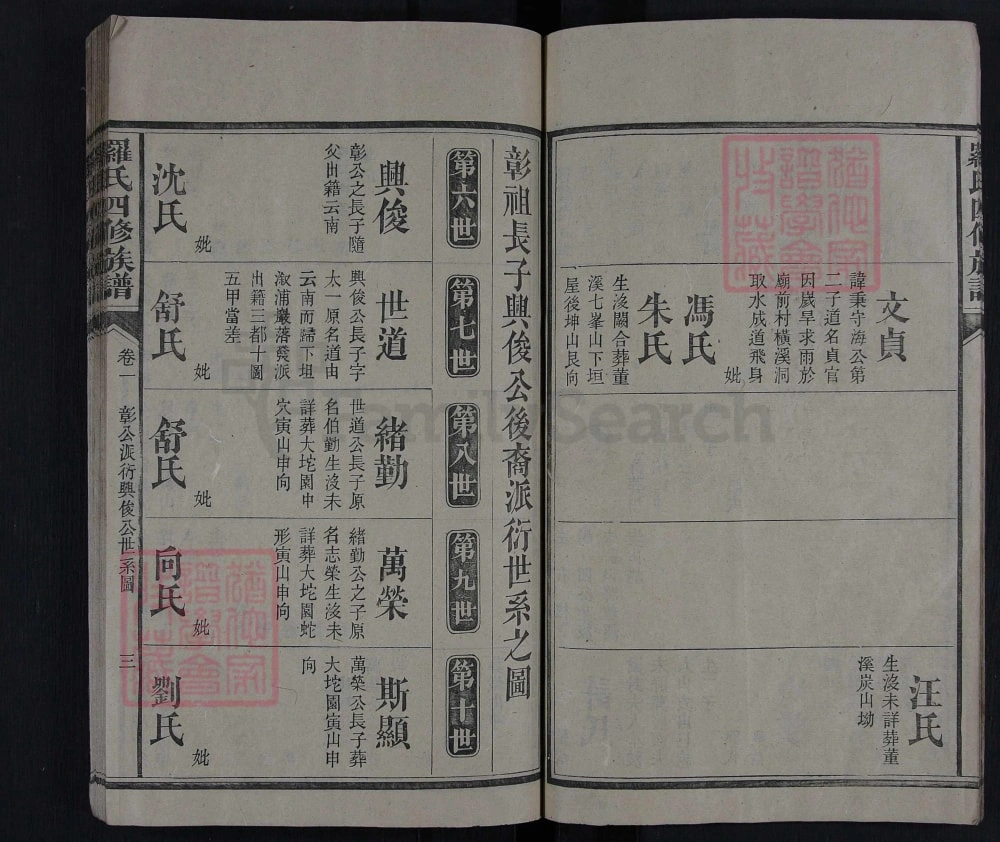 羅氏四修族譜
文貞
諱秉守海公第
二子道名貞官
因歲旱求雨於
廟前村橫溪洞
取水成道飛身
妣
馮氏
朱氏
生沒闕合葬董
溪七峯山下垣
屋後坤山艮向
汪氏
生沒未詳葬董
溪炭山坳
彰祖長子興俊公後裔派衍世系之圖
第六世
第七世
第八世
第九世
第十世
興俊
彰公之長子隨
父出籍云南
妣
沈氏
世道
興俊公長子字
太一原名道由
云南而歸下坥
溆浦巖落㵽派
出籍三都十圖
五甲當差
妣
舒氏
緒勤
世道公長子原
名伯勤生沒未
詳葬大坨園中
穴寅山申向
妣
舒氏
萬榮
緒勤公之子原
名志榮生沒未
詳葬大坨園蛇
形寅山申向
妣
向氏
斯顯
萬榮公長子葬
大坨園寅山申
向
妣
劉氏
羅氏四修族譜
卷一
彰公派衍興俊公世系圖
三
FamilySearch